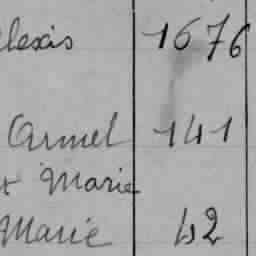 lexis 1676
Armel 141
et Marie
Marie 42